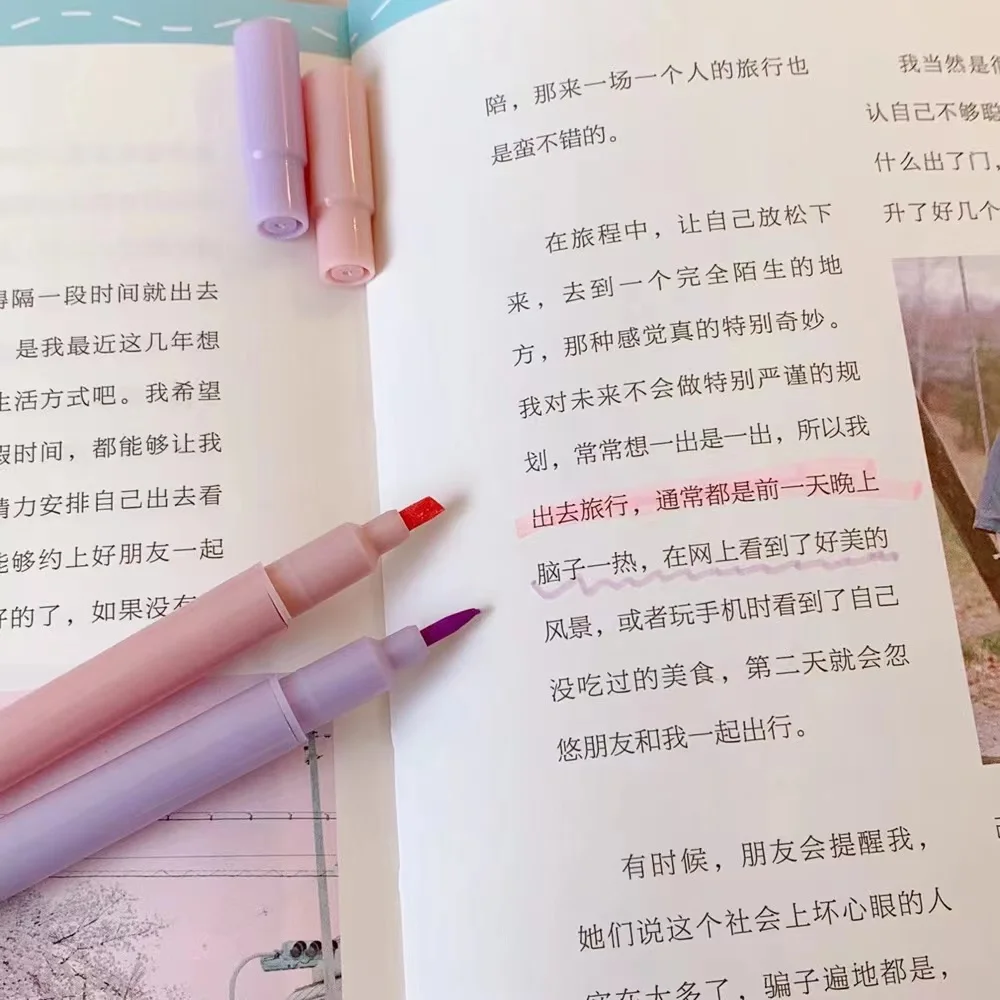 得隔一段时间就出去
是我最近这几年想
生活方式吧。我希望
假时间，都能够让我
精力安排自己出去看
能够约上好朋友一起
好的了，如果没有
陪，那来一场一个人的旅行也
是蛮不错的。
在旅程中，让自己放松下
来，去到一个完全陌生的地
方，那种感觉真的特别奇妙。
我对未来不会做特别严谨的规
划，常常想一出是一出，所以我
出去旅行，通常都是前一天晚上
脑子一热，在网上看到了好美的
风景，或者玩手机时看到了自己
没吃过的美食，第二天就会忽
悠朋友和我一起出行。
有时候，朋友会提醒我，
她们说这个社会上坏心眼的人
实在太多了，骗子遍地都是，
我当然是很
认自己不够聪
什么出了门，
升了好几个